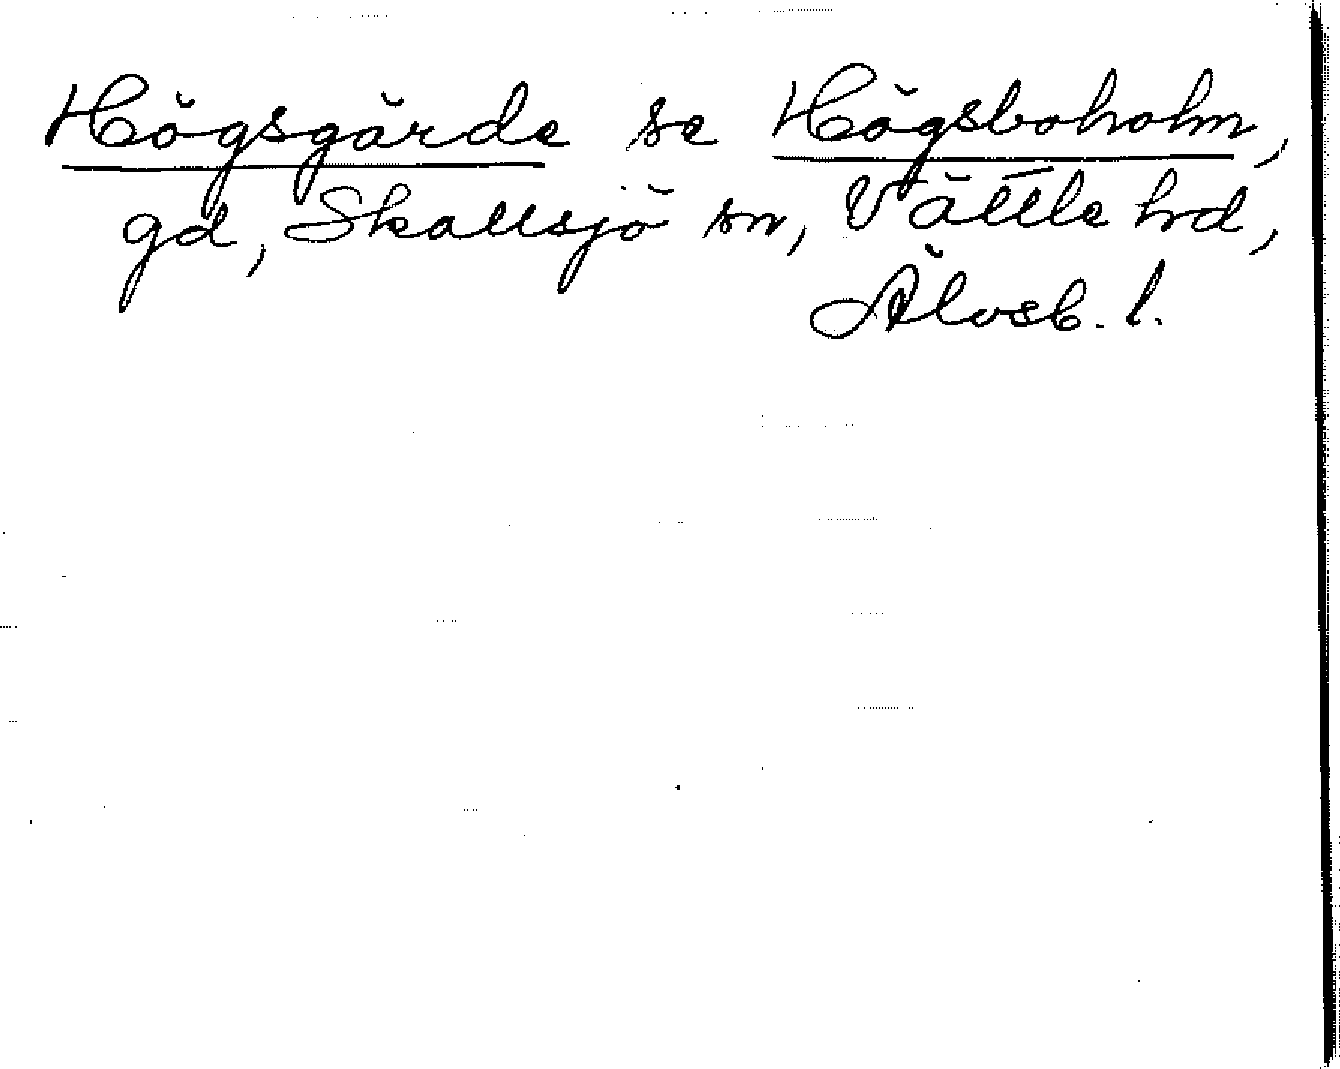 Högsgärde se Högsboholm,
gd, Skallsjö sn, Vättle hd,
Älvsb. l.